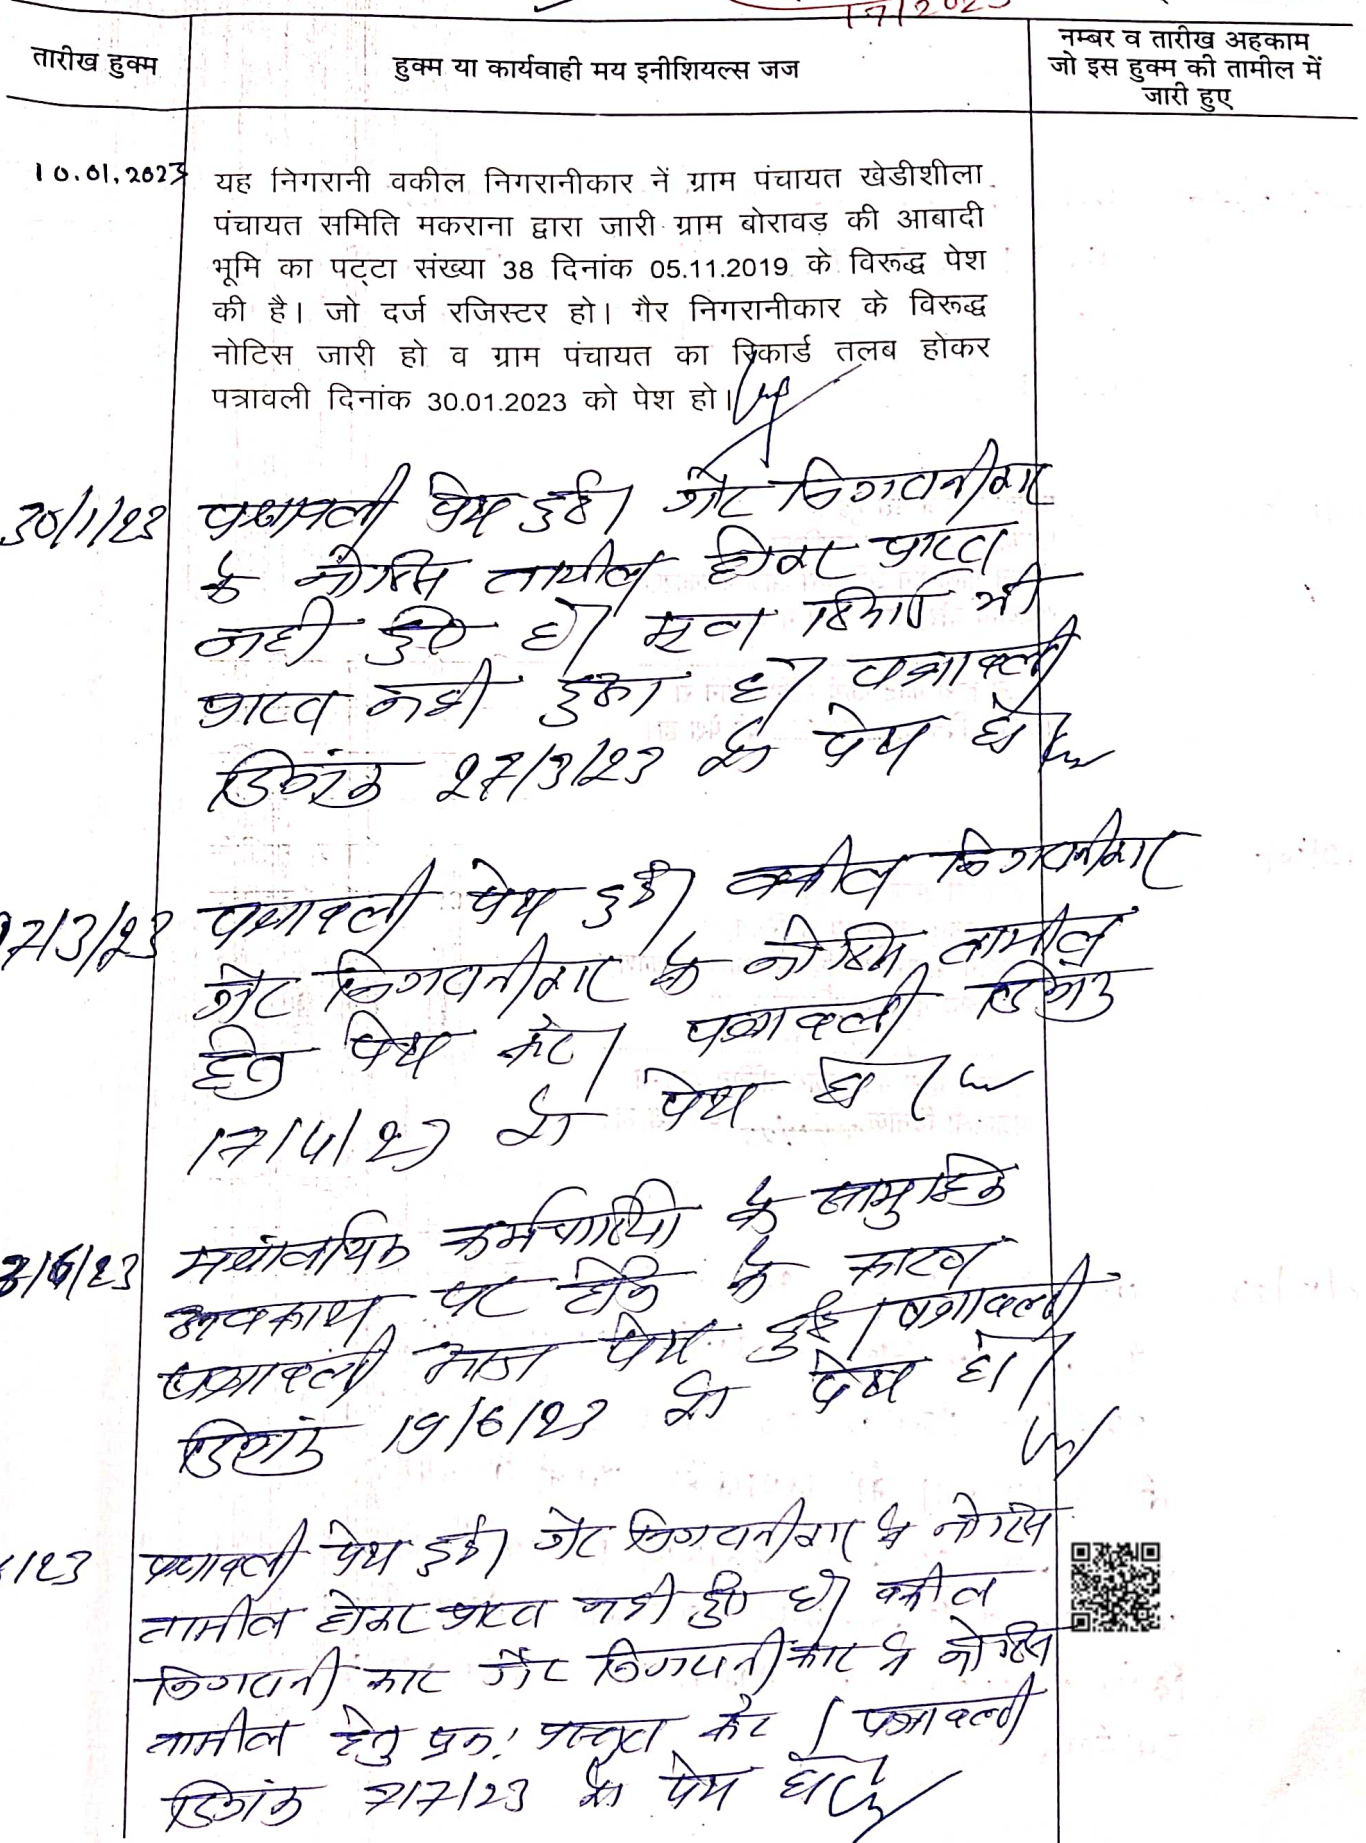 1/7/2023
तारीख हुक्म
हुक्म या कार्यवाही मय इनीशियल्स जज
नम्बर व तारीख अहकाम
जो इस हुक्म की तामील में
जारी हुए
10.01.2023
यह निगरानी वकील निगरानीकार नें ग्राम पंचायत खेडीशीला
पंचायत समिति मकराना द्वारा जारी ग्राम बोरावड़ की आबादी
भूमि का पट्टा संख्या 38 दिनांक 05.11.2019 के विरूद्ध पेश
की है। जो दर्ज रजिस्टर हो। गैर निगरानीकार के विरूद्ध
नोटिस जारी हो व ग्राम पंचायत का रिकार्ड तलब होकर
पत्रावली दिनांक 30.01.2023 को पेश हो।
30/1/23 पत्रावली पेश हुई। गैर निगरानीकार
के नोटिस तामील होकर प्राप्त
नही हुए है। मूल रिकार्ड भी
प्राप्त नही हुआ है। पत्रावली
दिनांक 27/3/23 को पेश हो।
27/3/23 पत्रावली पेश हुई। वकील निगरानीकार
गैर निगरानीकार के नोटिस तामील
हेतु पेश करे। पत्रावली दिनांक
17/4/23 को पेश हो।
मंत्रालयिक कर्मचारियो के सामुहिक
अवकाश पर होने के कारण
पत्रावली आज पेश हुई। पत्रावली
दिनांक 19/6/23 को पेश हो।
/23 पत्रावली पेश हुई। गैर निगरानीकार के नोटिस
तामील होकर प्राप्त नही हुए है। वकील
निगरानीकार गैर निगरानीकार के नोटिस
तामील हेतु पुनः प्रस्तुत करे। पत्रावली
दिनांक 7/7/23 को पेश हो।